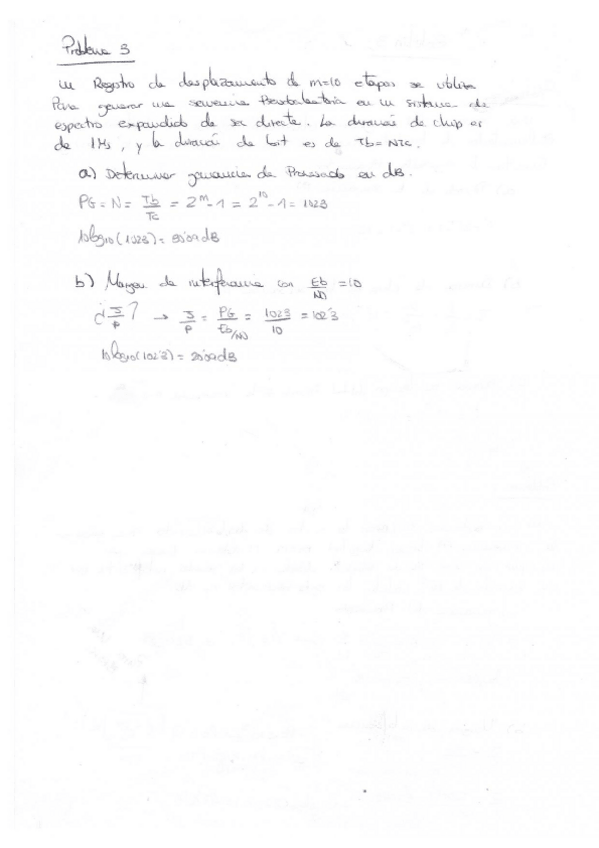 Problema 3
Un Registro de desplazamiento de m=10 etapas se utiliza
Para generar una secuencia Pseudoaleatoria en un sistema de
espectro expandido de sec directa. La duración de chip es
de 1Ms, y la duración de bit es de Tb=NTc.
a) Determinar ganancia de Procesado en dB.
PG = N = Tb/Tc = 2^m-1 = 2^10-1 = 1023
10log10(1023) = 30'09dB
b) Margen de interferencia con Eb/N0 = 10
¿J/P? → J/P = PG/Eb/N0 = 1023/10 = 102'3
10log10(102'3) = 20'09dB